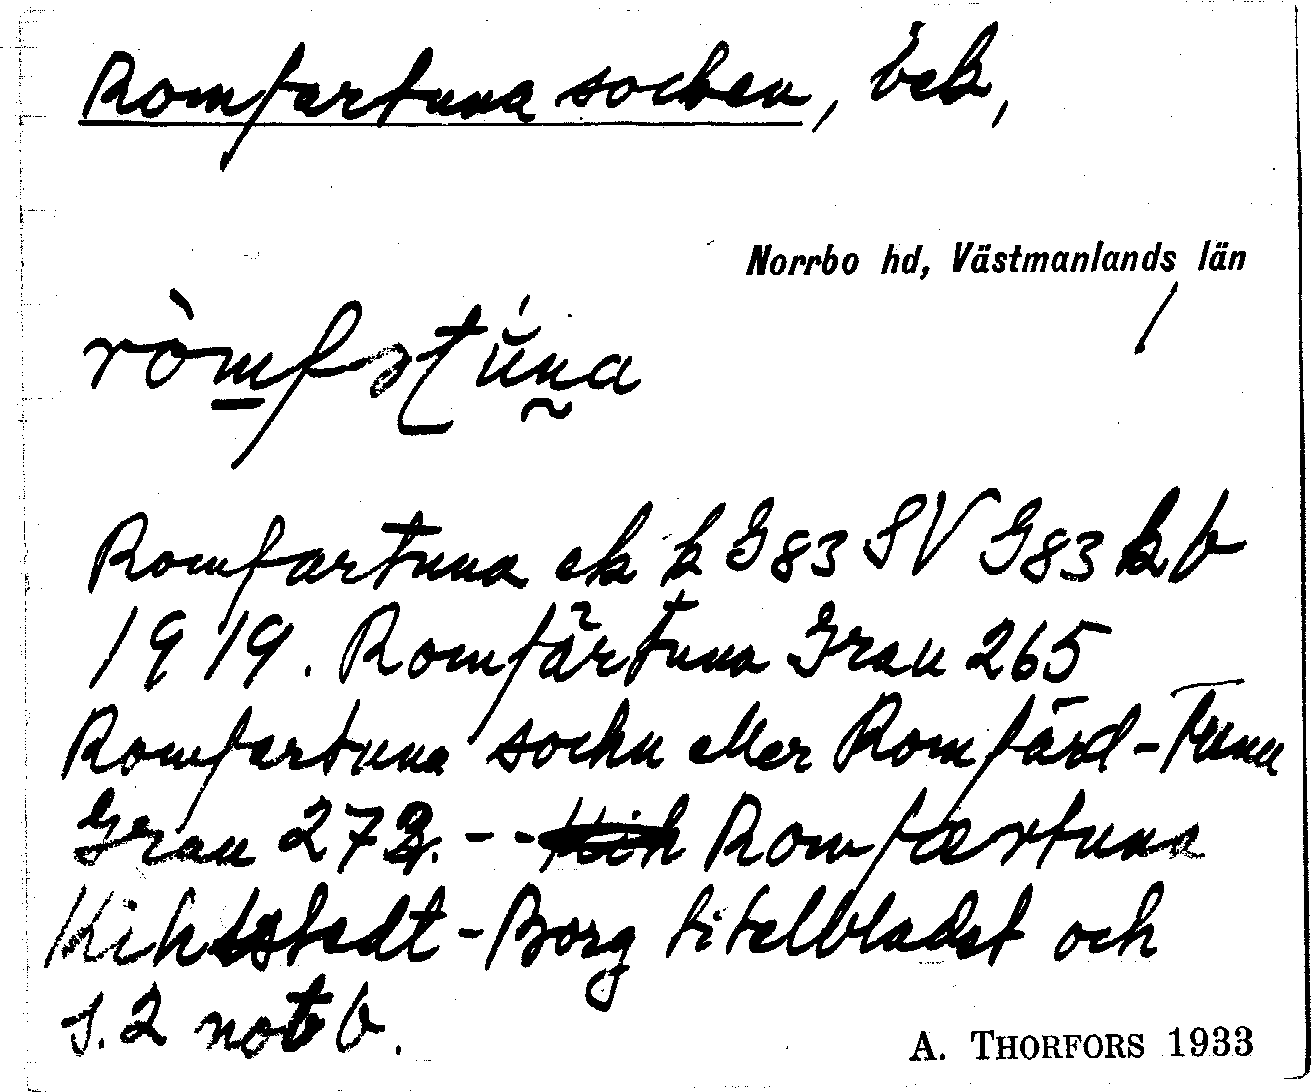 Romfartuna socken, öck,
Norrbo hd, Västmanlands län
Romfartuna ek k G83 SV G83 k b
1919. Romfärtuna Grau 265
Romfartuna sockn eller Romfärd-Tuna
Grau 272. -- Romfærtuna
Kihlstedt-Borg titelbladet och
s. 2 not b.
A. THORFORS 1933